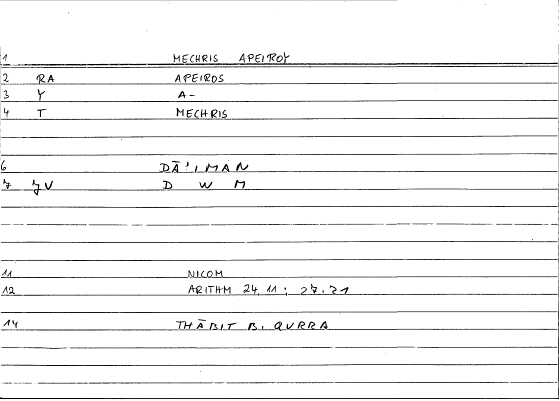 1 MECHRIS APEIROY
2 RA APEIROS
3 Y A-
4 T MECHRIS
6 DĀ'IMAN
7 JV D W M
11 NICOM
12 ARITHM 24,11; 27.21
14 THĀBIT B. QURRA